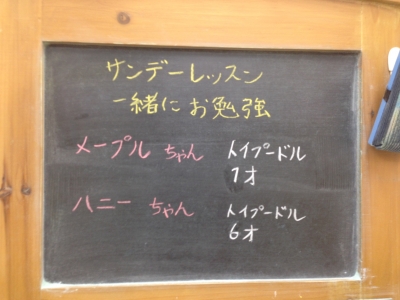 サンデーレッスン
一緒に お勉強
メープル ちゃん トイプードル
1才
ハニー ちゃん トイプードル
6才